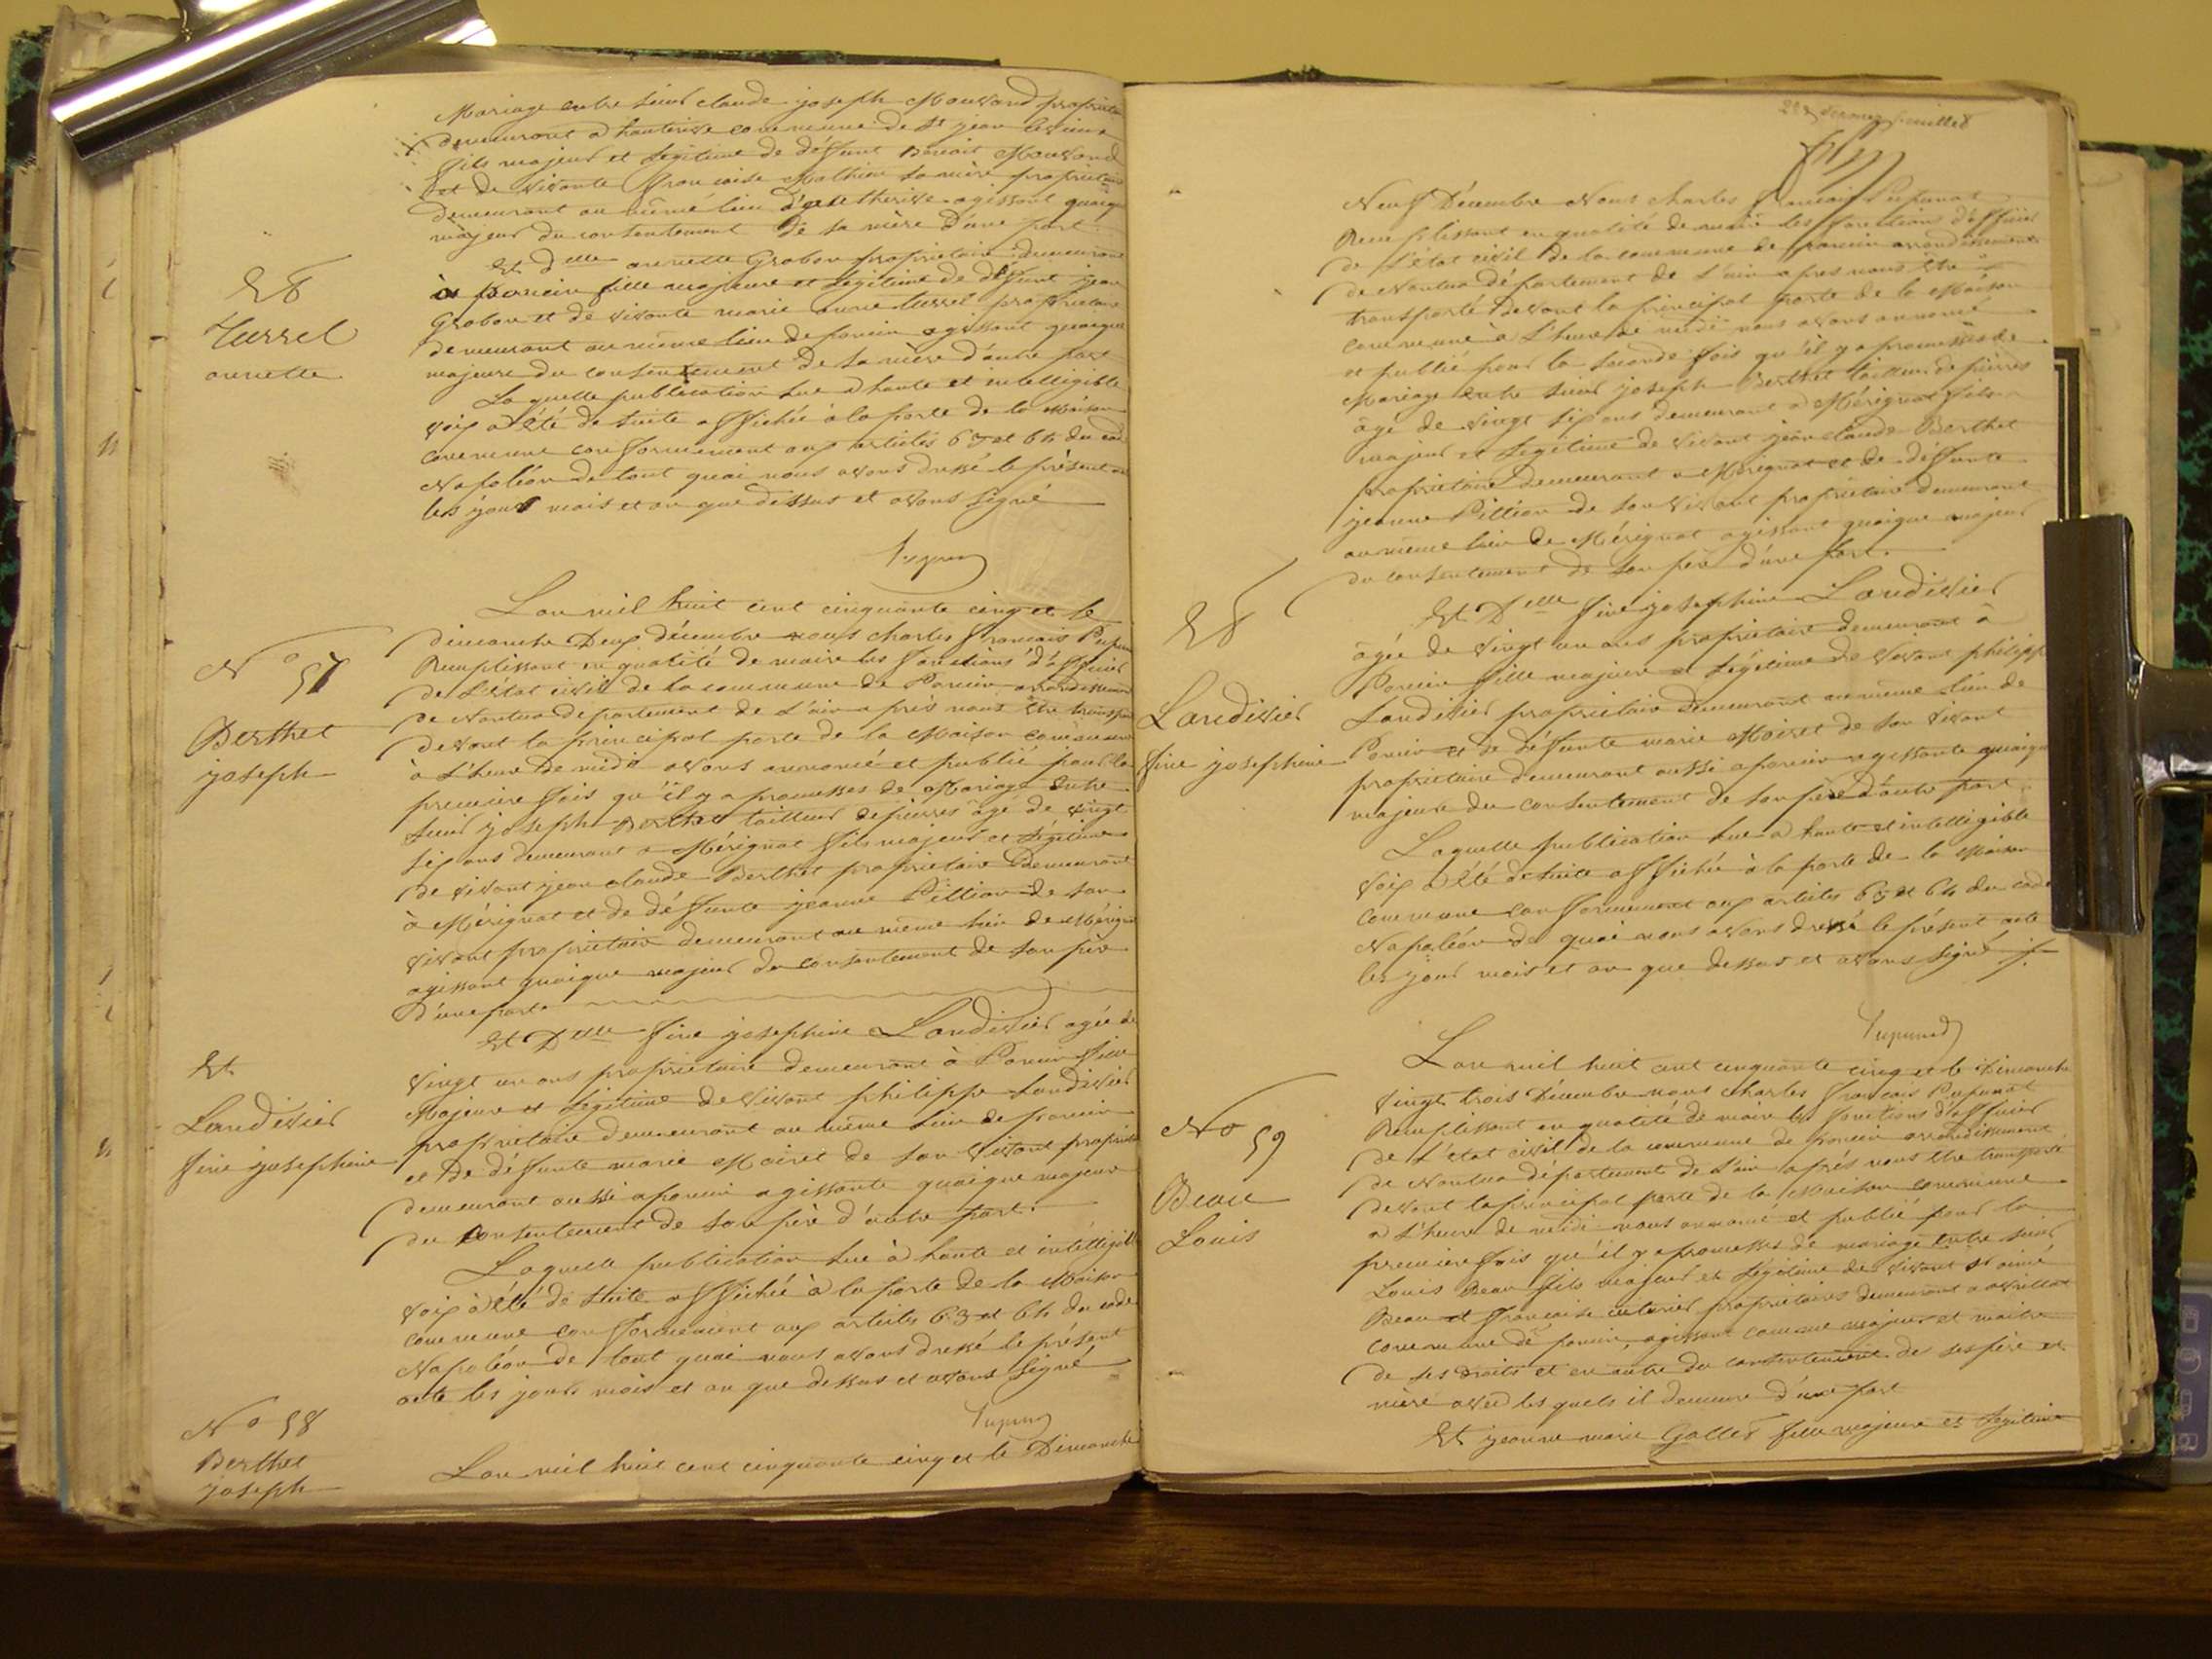 Mariage entre sieur claude joseph Mouvand propriétaire
demeurant a hauterive commune de St jean
fils majeur et légitime de deffunt Benoit Mouvand
et de vivante francoise Mathieu sa mère propriétaire
demeurant au même lieu d'hautherive agissant quoique
majeur du consentement de sa mère d'une part
Et
Turrel
annette
Et delle annette Grobon propriétaire demeurant
à Poncin fille majeure et légitime de deffunt jean
Grobon et de vivante marie anne turrel propriétaire
demeurant au même lieu de poncin agissant quoique
majeure du consentement de sa mère d'autre part
Laquelle publication lue a haute et intelligible
voix a été de suite affichée à la porte de la Maison
commune conformement aux articles 63 et 64 du code
Napoléon de tout quoi nous avons dressé le présent
les jours mois et an que dessus et avons signé
Lan mil huit cent cinquante cinq et le
dimanche Deux décembre nous charles francais
Remplissant en qualité de maire les fonctions d'officier
de L'état civil de la commune de Poncin arrondissement
de Nantua departement de L'ain après nous être transporté
devant la principal porte de la Maison commune
à L'heure de midi avons annoncé et publié pour la
première fois qu'il y a promesses de Mariage entre
sieur joseph Berthet tailleur de pierres âgé de vingt
six ans demeurant a Mérignat fils majeur et légitime
de vivant jean claude Berthet propriétaire demeurant
à Mérignat et de déffunte jeanne Pittion de son
vivant propriétaire demeurant au même lieu de Mérignat
agissant quoique majeur du consentement de son père
d'une part
No 57
Berthet
joseph
Et
Landivier
fine josephine
Et Delle fine josephine Landivier agée de
vingt un ans propriétaire demeurant à Poncin fille
Majeure et légitime de vivant philippe Landivier
propriétaire demeurant au même lieu de poncin
et de déffunte marie Moiret de son vivant propriétaire
demeurant aussi a poncin agissante quoique majeur
du consentement de son père d'autre part.
Laquelle publication lue à haute et intélligible
voix à été de suite affichée à la porte de la Maison
commune conformement aux articles 63 et 64 du code
Napoléon de tout quoi nous avons dressé le présent
acte les jours mois et an que dessus et avons signé
No 58
Berthet
joseph
Lan mil huit cent cinquante cinq et le Dimanche
feuillet
Neuf Décembre Nous charles francais Pupunat
Remplissant en qualité de maire les fonctions d'officier
de L'état civil de la commune de poncin arrondissement
de Nantua département de L'ain apres nous être
transporté devant la principal porte de la Maison
commune à L'heure de midi nous avons annoncé
et publié pour la seconde fois qu'il y a promesses de
Mariage entre sieur joseph Berthet tailleur de pierres
âgé de vingt six ans demeurant a Mérignat fils
majeur et légitime de vivant jean claude Berthet
propriétaire demeurant a Mérignat et de déffunte
jeanne Pittion de son vivant propriétaire demeurant
au même lieu de Mérignat agissant quoique majeur
du consentement de son père d'une part.
Et
Landivier
fine josephine
Et Delle fine josephine Landivier
agée de vingt un ans propriétaire demeurant à
Poncin fille majeure et légitime de vivant philippe
Landivier propriétaire demeurant au même lieu de
Poncin et de déffunte marie Moiret de son vivant
propriétaire demeurant aussi a poncin agissante quoique
majeure du consentement de son père d'autre part.
Laquelle publication lue a haute et intelligible
voix a été de suite affichée à la porte de la Maison
commune conformement aux articles 63 et 64 du code
Napoléon de quoi nous avons dressé le présent acte
les jour mois et an que dessus et avons signé
Pupunat
No 59
Beau
Louis
Lan mil huit cent cinquante cinq et le Dimanche
vingt trois Décembre nous charles francais Pupunat
Remplissant en qualité de maire les fonctions d'officier
de L'état civil de la commune de poncin arrondissement
de Nantua département de L'ain après nous être transporté
devant la principal porte de la Maison commune
a L'heure de midi nous annoncé et publié pour la
première fois qu'il y a promesses de mariage entre sieur
Louis Beau fils majeur et légitime de vivant
Beau et francoise propriétaires demeurant a
commune de poncin, agissant comme majeur et maitre
de ses droits et en outre du consentement de ses père et
mère avec les quels il demeure d'une part
Et jeanne marie Gallet fille majeure et légitime